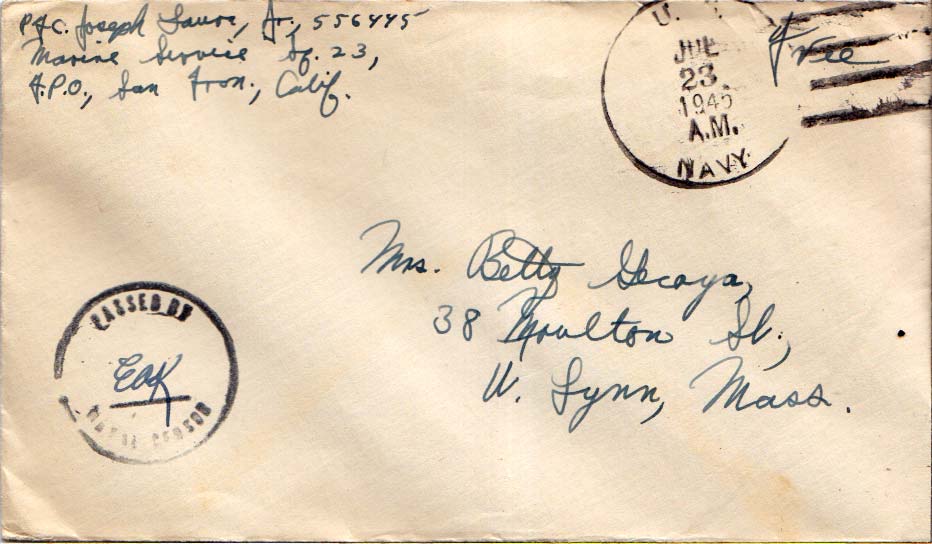 Pfc. Joseph Jr., 556445
Marine Service Sq. 23,
F.P.O., San Fran., Calif.
U.
JUL
23
1945
A.M.
NAVY
Free
Mrs. Betty Gecoya,
38 Moulton St.,
W. Lynn, Mass.
PASSED BY
EOK
NAVAL CENSOR